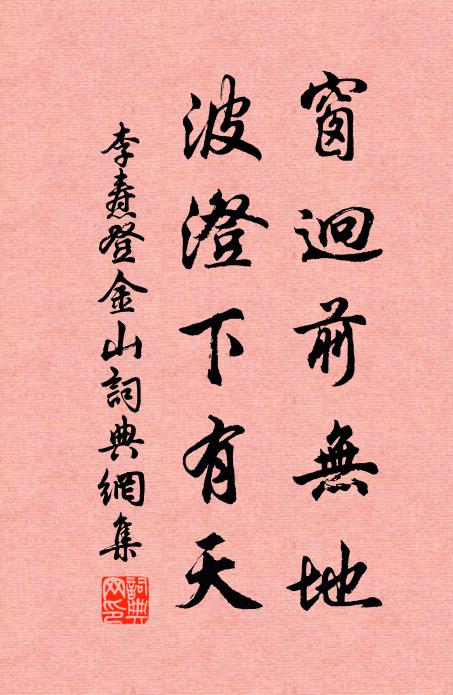 窗迥前無地
波澄下有天
李燾登金山詞典網集
詞典网印